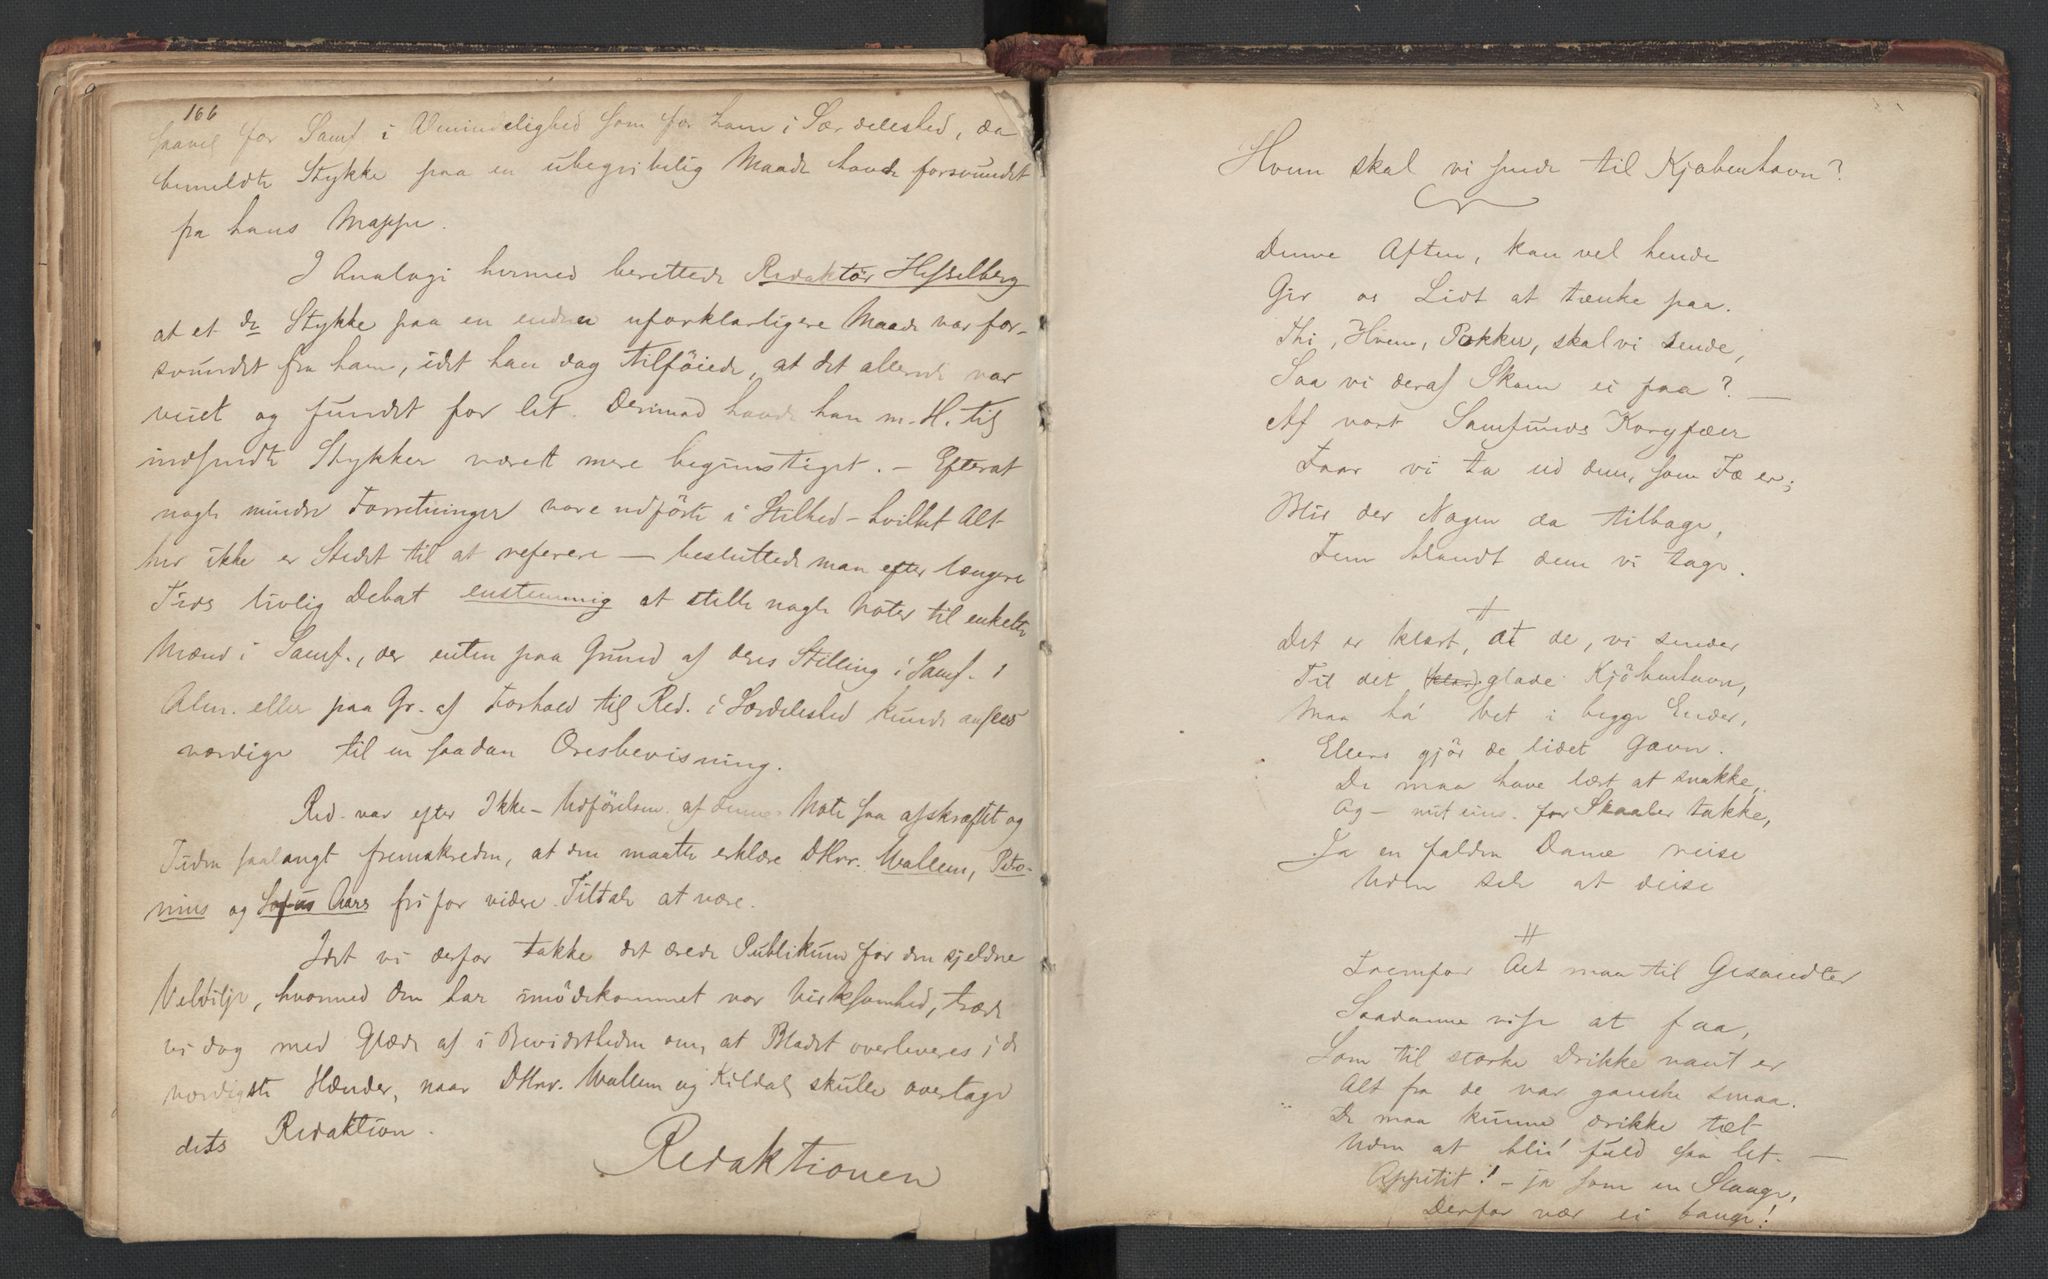 166
saavel for Samf i Almindelighed som for ham i Særdeleshed, da
bemeldte Stykke paa en ubegribelig Maade havde forsvundet
fra hans Mappe.
I Analogi hermed berettede Redaktør Hesselberg
at et do Stykke paa en endnu uforklarligere Maade var for-
svundet fra ham, idet han dog tilføiede, at det allerede var
veiet og fundet for let. Derimod havde han m. H. til
indsendte Stykker været mere begunstiget. – Efterat
nogle mindre Forretninger vare udførte i Stilhed – hvilket Alt
her ikke er Stedet til at referere – besluttede man efter længere
Tids livlig Debat enstemmig at stille nogle Noter til enkelte
Mænd i Samf., der enten paa Grund af deres Stilling i Samf. i
Alm. eller paa Gr. af Forhold til Red. i Særdeleshed kunde ansees
værdige til en saadan Æresbevisning.
Red. var efter Ikke-Udførelsen af denne Note saa afskræftet og
Tiden saalangt fremskreden, at den maatte erklære DHrr. Wallem, Petro-
nius og Sofus Aars fri for videre Tiltale at være.
Idet vi derfor takke det ærede Publikum for den sjeldne
Velvilje, hvormed den har imødekommet vor Virksomhed, træde
vi dog med Glæde af i Bevidstheden om, at Bladet overleveres i de
værdigste Hænder, naar DHrr. Wallem og Kildal skulle overtage
dets Redaktion.
Redaktionen
Hvem skal vi sende til Kjøbenhavn?
Denne Aften, kan vel hende
Gir os Lidt at tænke paa.
Thi, Hvem, Pokker, skal vi sende,
Saa vi deraf Skam ei faa? —
Af vort Samfunds Koryfæer
Faar vi ta ud dem, som Fæ er;
Blir der Nogen da tilbage,
Fem blandt dem vi tage.
+
Det er klart, at de, vi sender
Til det glade Kjöbenhavn,
Maa ha' Vet i begge Ender,
Ellers gjör de lidet Gavn.
De maa have lært at snakke,
Og – mit eins. for Skaaler takke,
Ja en falden Dame reise
Uden selv at deise
++
Fremfor Alt maa til Gesandter
Saadanne vi se at faa,
Som til stærke Drikke vant er
Alt fra de var ganske smaa.
De maa kunne drikke tæt
Uden at bli' fuld saa let. —
Appetit! – ja som en Slange,
Derfor vær ei bange!